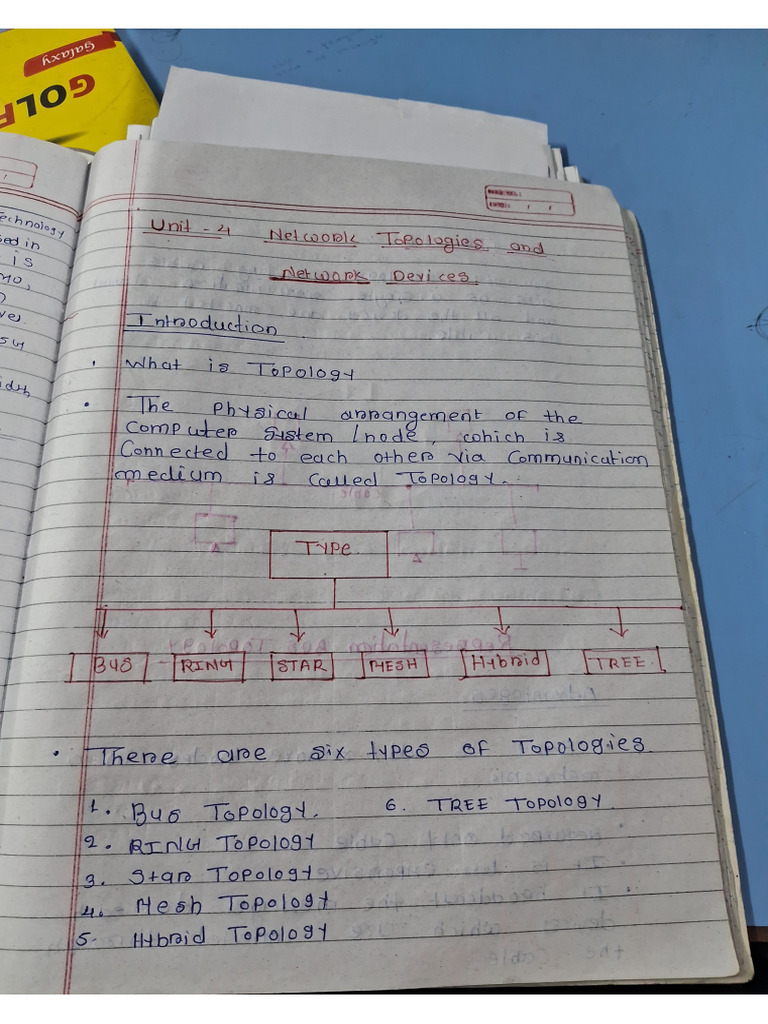 Galaxy
GOLF
Technology
sed in
is
Unit - 4 Network Topologies and
Network Devices.
Introduction
• What is Topology
• The physical arrangement of the
computer system / node, which is
connected to each other via communication
medium is called Topology.
Type
BUS RING STAR MESH Hybrid TREE
• There are six types of Topologies
1. Bus Topology. 6. TREE Topology.
2. RING Topology
3. Star Topology
4. Mesh Topology
5. Hybrid Topology